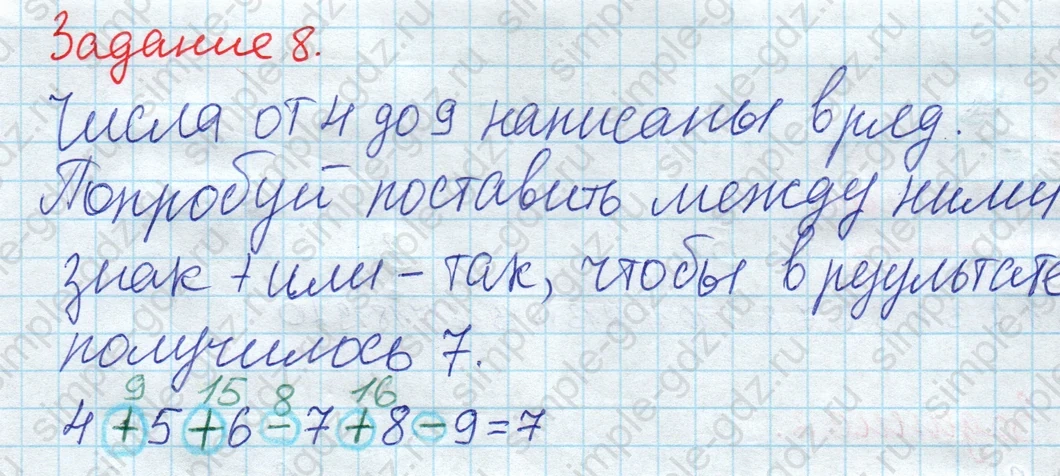 Задание 8.
Числа от 4 до 9 написаны в ряд.
Попробуй поставить между ними
знак + или – так, чтобы в результате
получилось 7.
9 15 8 16
4 + 5 + 6 – 7 + 8 – 9 = 7
simple-gdz.ru